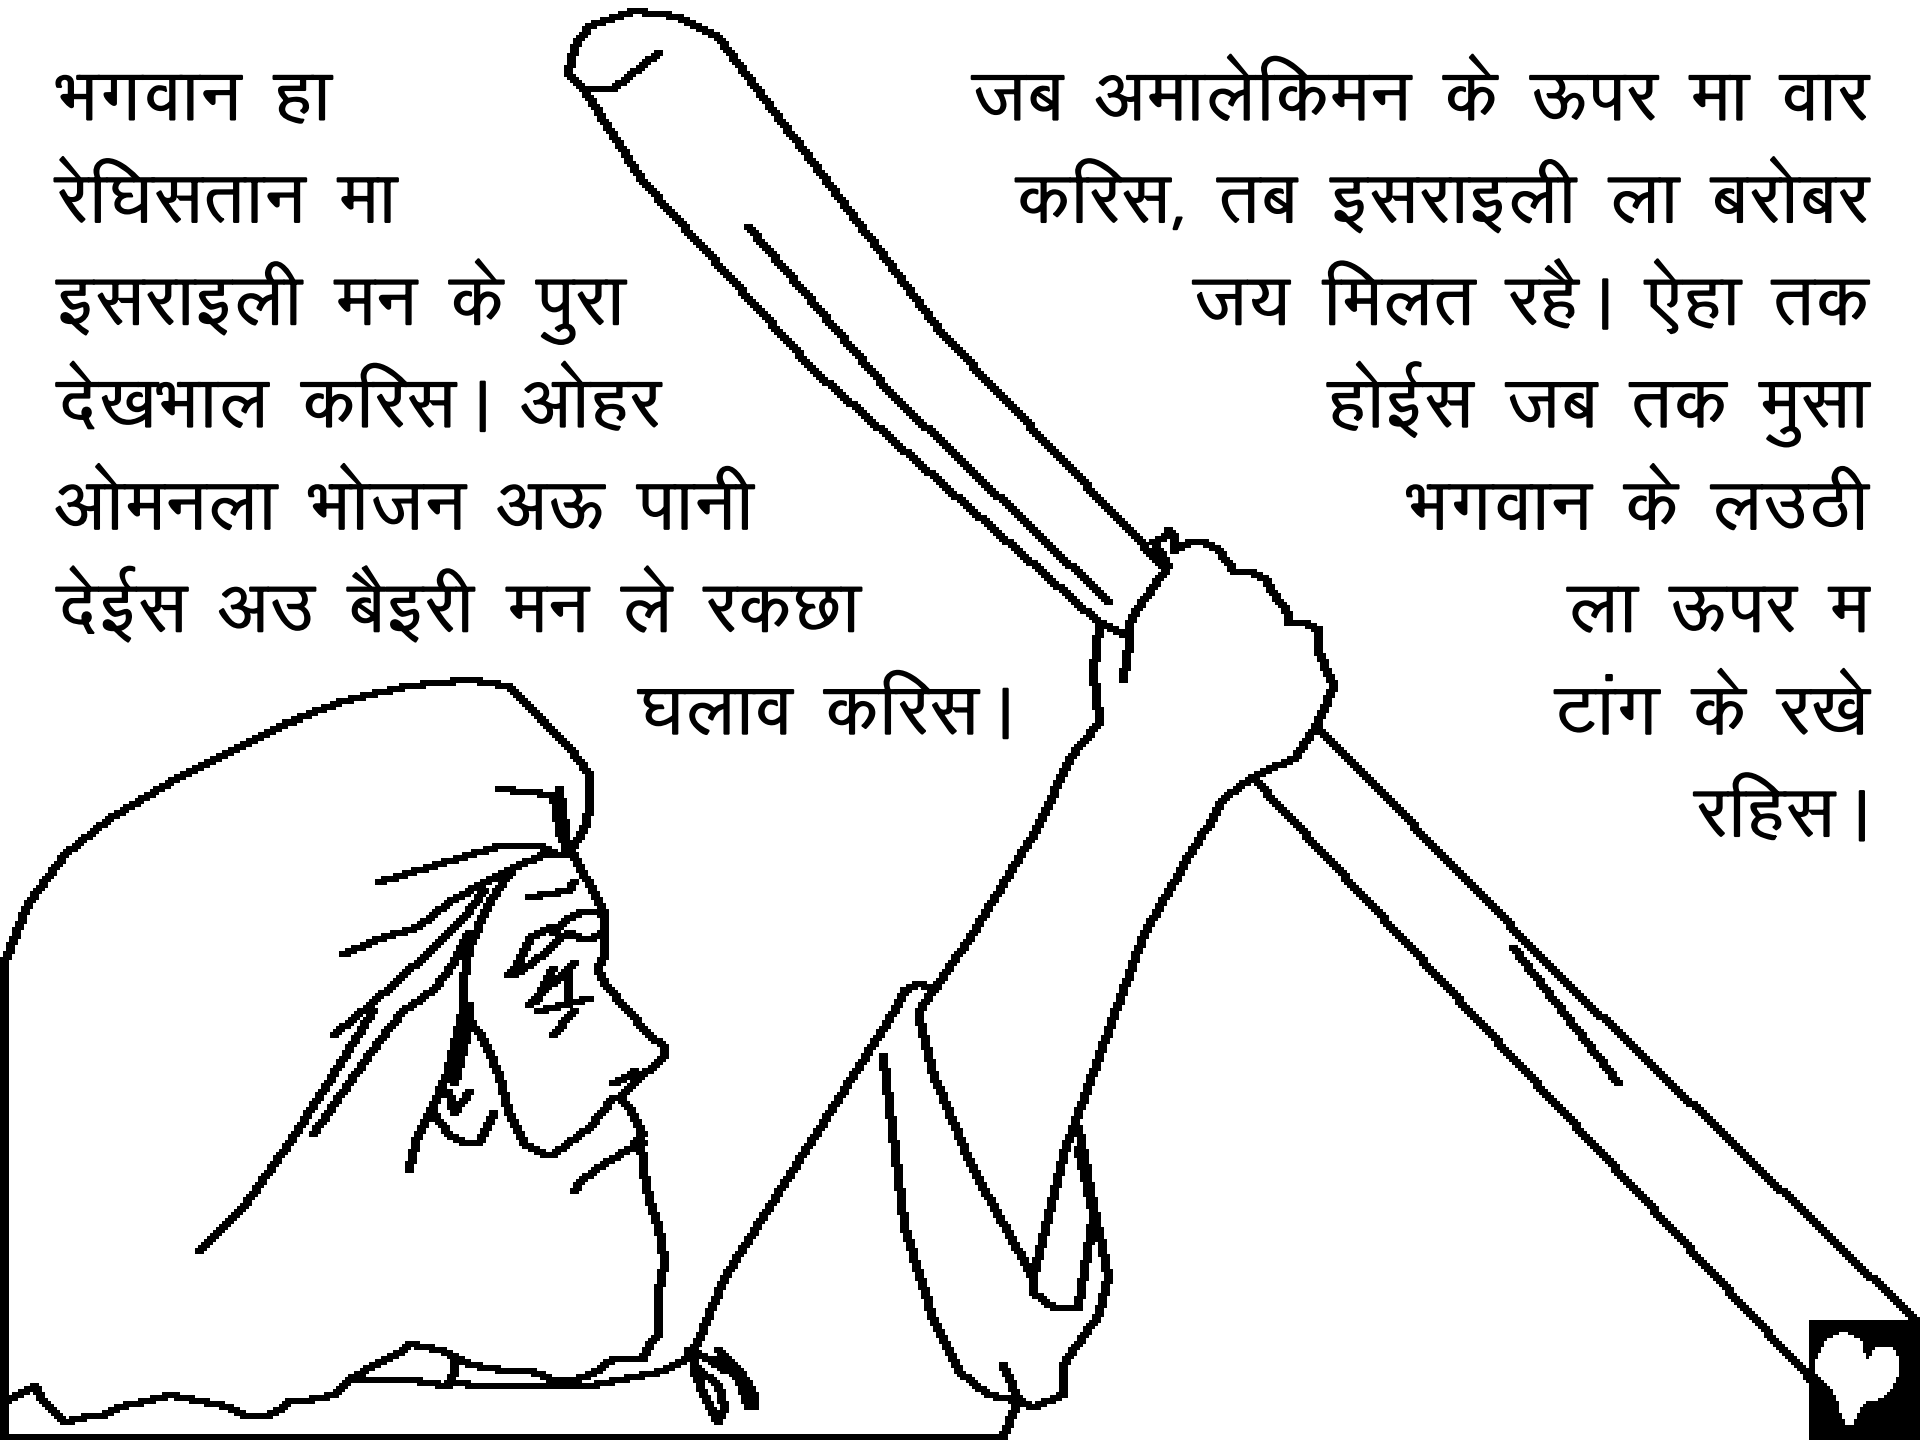 भगवान हा
रेघिसतान मा
इसराइली मन के पुरा
देखभाल करिस। ओहर
ओमनला भोजन अऊ पानी
देईस अउ बैइरी मन ले रकछा
घलाव करिस।
जब अमालेकिमन के ऊपर मा वार
करिस, तब इसराइली ला बरोबर
जय मिलत रहै। ऐहा तक
होईस जब तक मुसा
भगवान के लउठी
ला ऊपर म
टांग के रखे
रहिस।